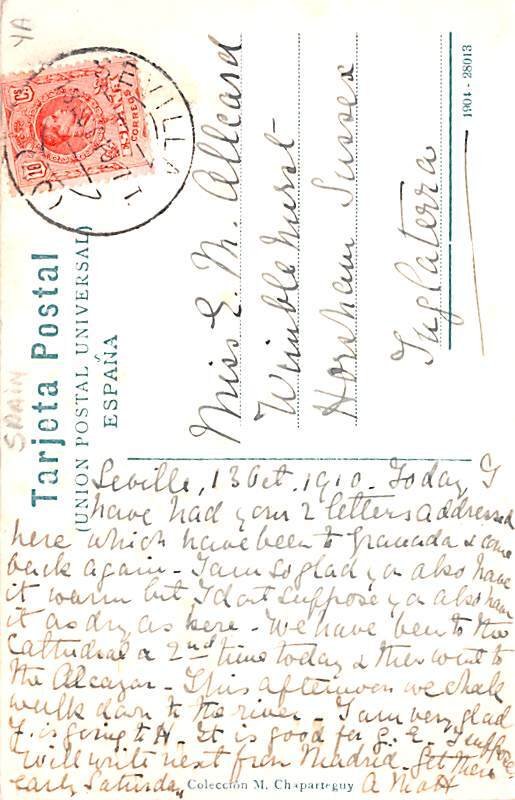 YA
SPAIN
Tarjeta Postal
(UNION POSTAL UNIVERSAL)
ESPAÑA
ESPAÑA
CORREOS
10 Cs
SEVILLA
Miss E. M. Allcard
Wimblehurst
Horsham Sussex
Inglaterra
1904 - 28013
Seville, 13 Oct. 1910. Today I
have had your 2 letters addressed
here which have been to Granada & come
back again - I am so glad you also have
it warm but I dont suppose you also have
it as dry as here - We have been to the
Cathedral a 2nd time today & then went to
the Alcazar - This afternoon we shall
walk down to the river - I am very glad
F. is going to H. It is good for G. E. I suppose
Will write next from Madrid - get there
early Saturday
Colección M. Chaparteguy